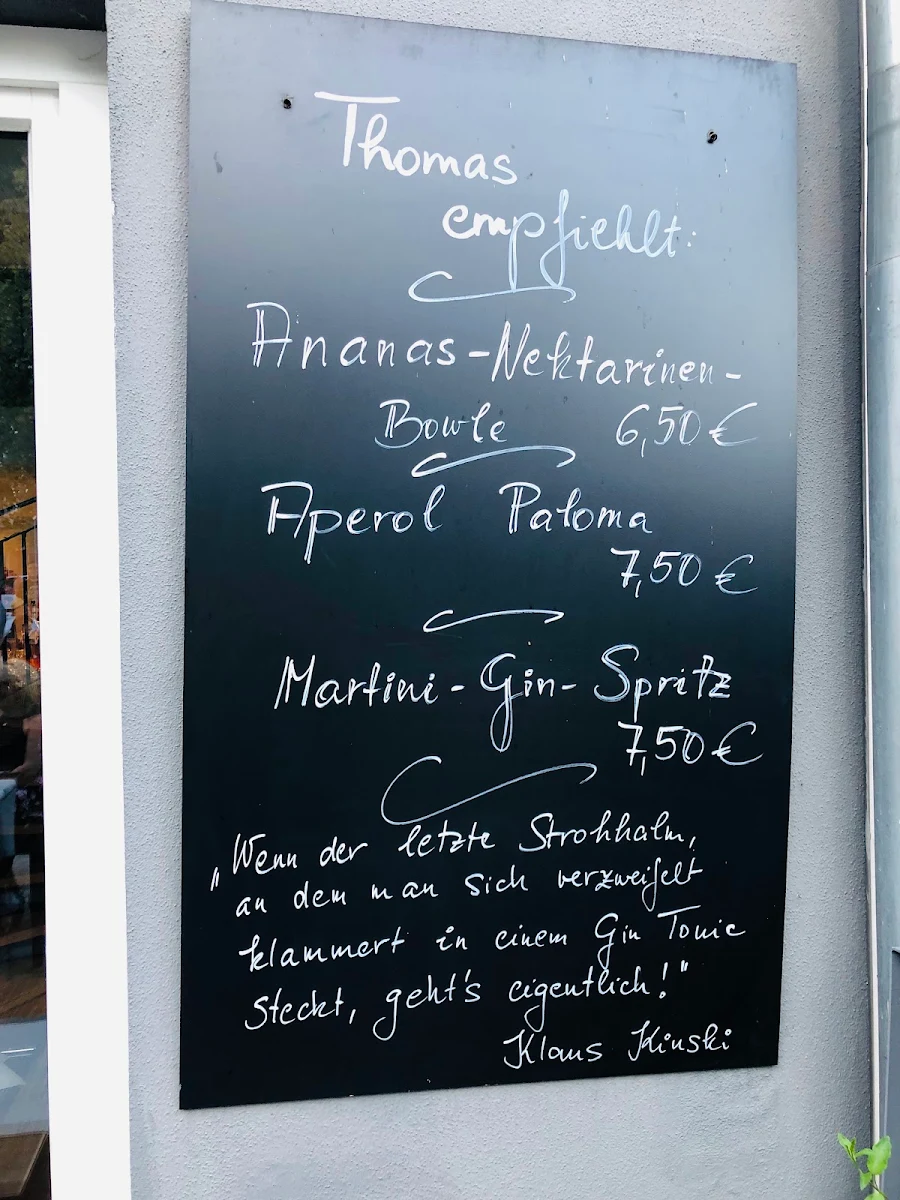 Thomas
empfiehlt:
Ananas-Nektarinen-
Bowle 6,50 €
Aperol Paloma
7,50 €
Martini-Gin-Spritz
7,50 €
„Wenn der letzte Strohhalm,
an dem man sich verzweifelt
klammert in einem Gin Tonic
steckt, geht's eigentlich!"
Klaus Kinski